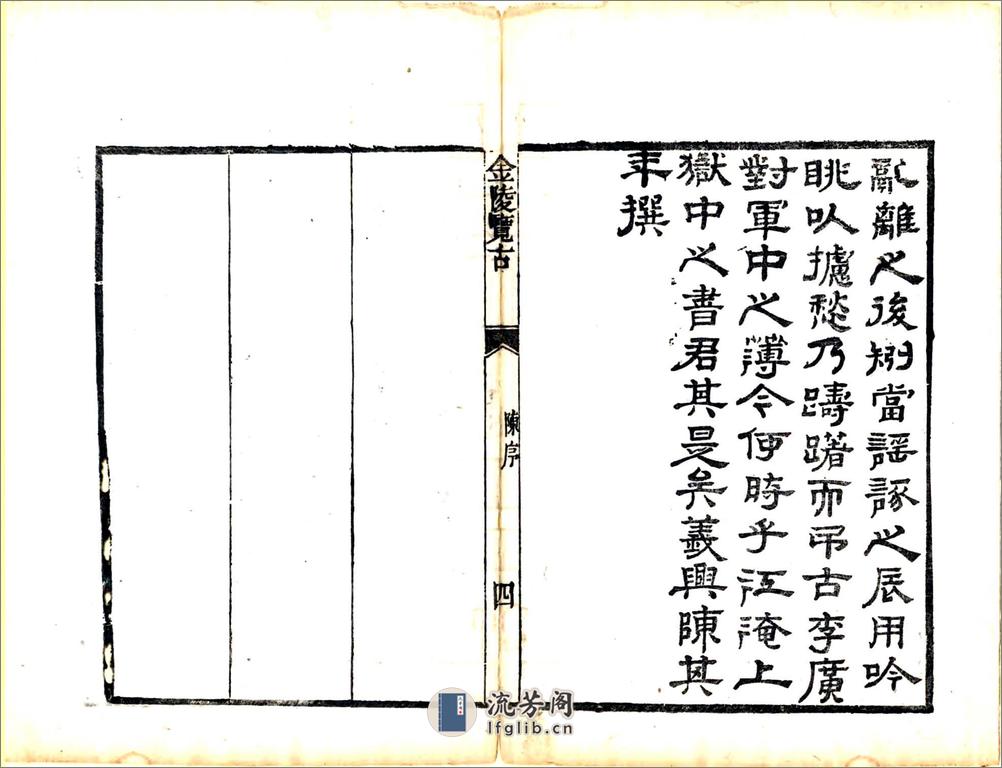 亂離之後矧當謡諑之辰用吟
眺以攄愁乃躊躇而吊古李廣
對軍中之薄今何時乎江淹上
獄中之書君其是矣義興陳其
年撰
金陵覽古
陳序
四
流芳阁
lfglib.cn